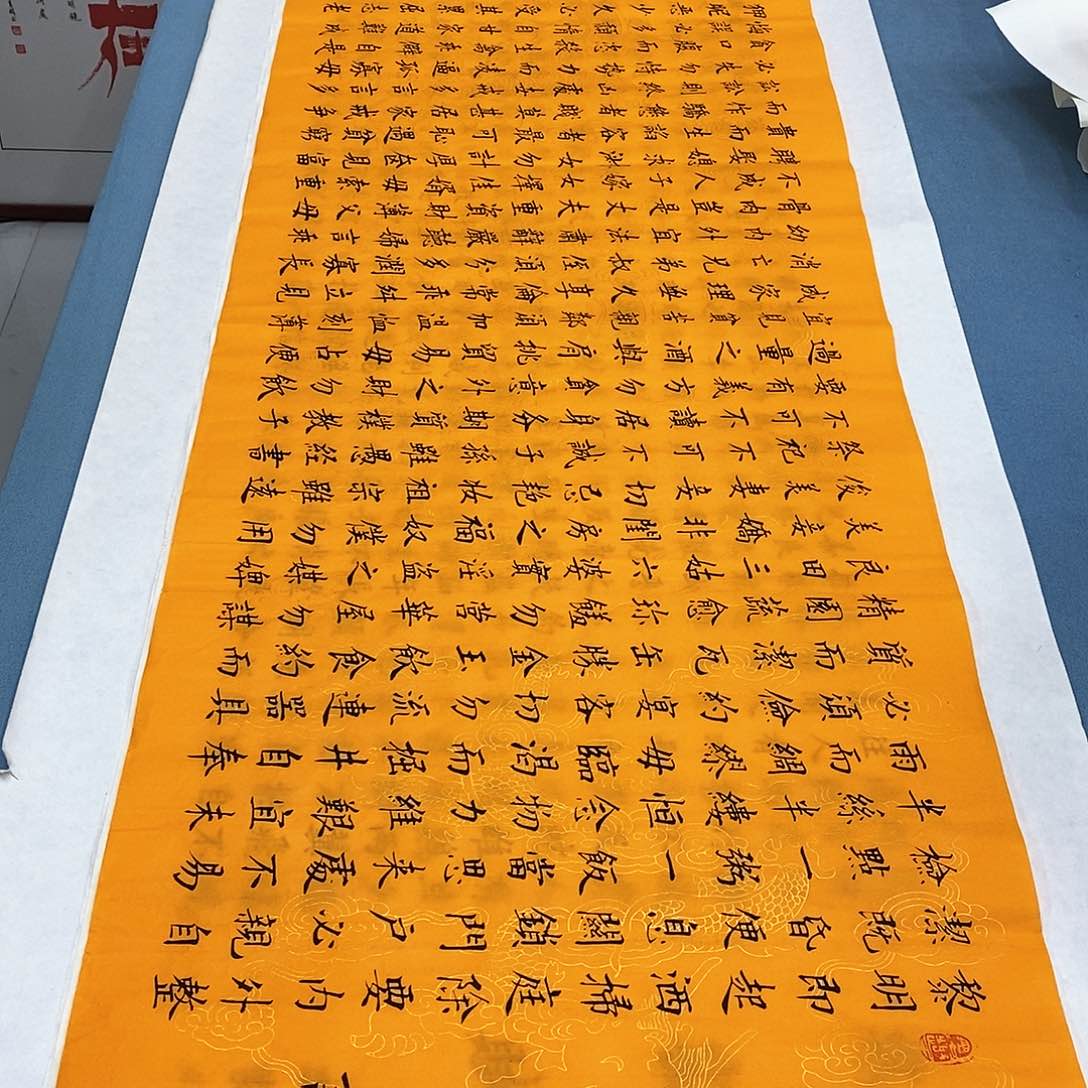 黎明即起洒掃庭除要內外整
潔既昏便息關鎖門戶必親自
檢點一粥一飯當思來處不易
半絲半縷恒念物力維艱宜未
雨而綢繆毋臨渴而掘井自奉
必須儉約宴客切勿流連器具
質而潔瓦缶勝金玉飲食約而
精園蔬愈珍饈勿營華屋勿謀
良田三姑六婆實淫盜之媒婢
美妾嬌非閨房之福奴僕勿用
俊美妻妾切忌艷妝祖宗雖遠
祭祀不可不誠子孫雖愚經書
不可不讀居身務期質樸教子
要有義方勿貪意外之財勿飲
過量之酒與肩挑貿易毋占便
宜見貧苦親鄰須加溫恤刻薄
成家理無久享倫常乖舛立見
消亡兄弟叔侄須分多潤寡長
幼內外宜法肅辭嚴聽婦言乖
骨肉豈是丈夫重資財薄父母
不成人子嫁女擇佳婿毋索重
聘娶媳求淑女勿計厚奩見富
貴而生諂容者最可恥遇貧窮
而作驕態者賤莫甚居家戒爭
訟訟則終凶處世戒多言言多
必失勿恃勢力而凌逼孤寡毋
貪口腹而恣殺生禽乖僻自是
悔誤必多頹惰自甘家道難成
狎昵惡少久必受其累屈志老